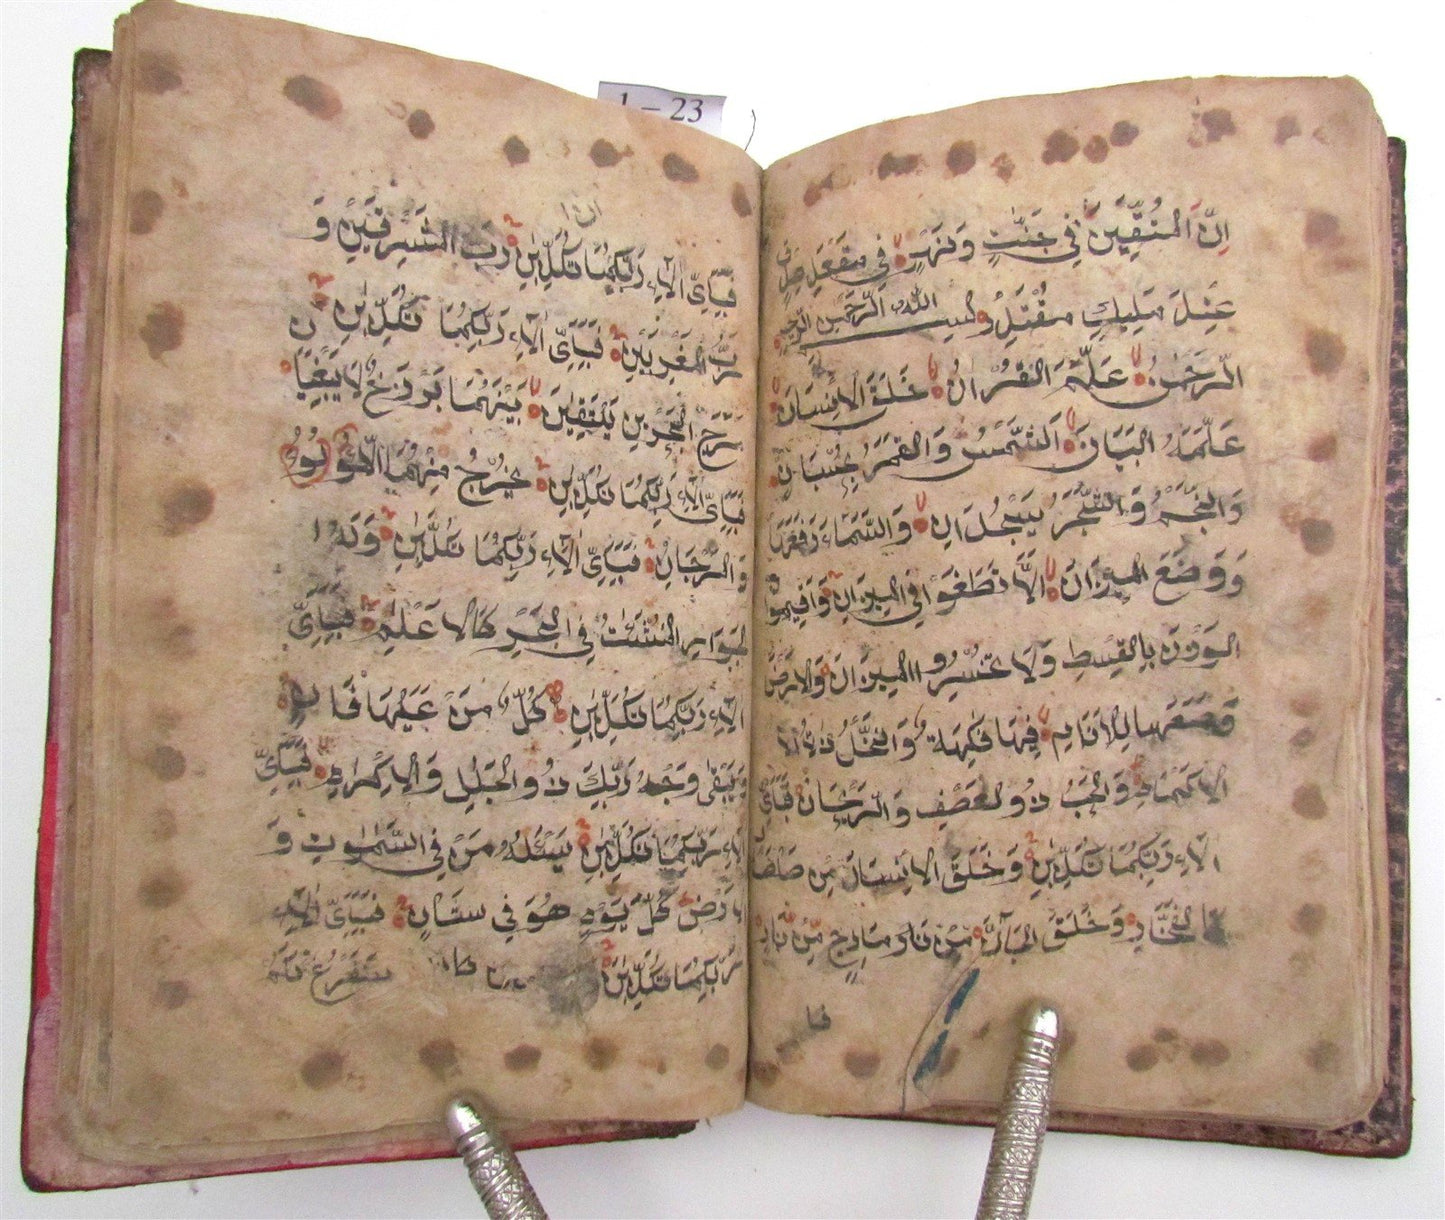 1 – 23
اِنَّ الْمُتَّقِينَ فِي جَنَّتٍ وَنَهَرٍ فِي مَقْعَدِ صِدْقٍ
عِنْدَ مَلِيكٍ مُقْتَدِرٍ بسم الله الرَّحْمَنِ الرَّحِيمِ
الرَّحْمٰنُ عَلَّمَ الْقُرْاٰنَ خَلَقَ الْاِنْسَانَ
عَلَّمَهُ الْبَيَانَ اَلشَّمْسُ وَالْقَمَرُ بِحُسْبَانٍ
وَالنَّجْمُ وَالشَّجَرُ يَسْجُدَانِ وَالسَّمَاءَ رَفَعَهَا
وَوَضَعَ الْمِيزَانَ اَلَّا تَطْغَوْا فِي الْمِيزَانِ وَاَقِيمُوا
الْوَزْنَ بِالْقِسْطِ وَلَا تُخْسِرُوا الْمِيزَانَ وَالْاَرْضَ
وَضَعَهَا لِلْاَنَامِ فِيهَا فَاكِهَةٌ وَالنَّخْلُ ذَاتُ
الْاَكْمَامِ وَالْحَبُّ ذُو الْعَصْفِ وَالرَّيْحَانُ فَبِاَيِّ
اٰلَاءِ رَبِّكُمَا تُكَذِّبٰنِ وَخَلَقَ الْاِنْسَانَ مِنْ صَلْصَا
كَالْفَخَّارِ وَخَلَقَ الْجَانَّ مِنْ مَارِجٍ مِنْ نَارٍ
فبا
فَبِاَيِّ اٰلَاءِ رَبِّكُمَا تُكَذِّبٰنِ رَبُّ الْمَشْرِقَيْنِ وَ
رَبُّ الْمَغْرِبَيْنِ فَبِاَيِّ اٰلَاءِ رَبِّكُمَا تُكَذِّبٰنِ
مَرَجَ الْبَحْرَيْنِ يَلْتَقِيٰنِ بَيْنَهُمَا بَرْزَخٌ لَا يَبْغِيَا
فَبِاَيِّ اٰلَاءِ رَبِّكُمَا تُكَذِّبٰنِ يَخْرُجُ مِنْهُمَا اللُّؤْلُوُ
وَالْمَرْجَانُ فَبِاَيِّ اٰلَاءِ رَبِّكُمَا تُكَذِّبٰنِ وَلَهُ ا
لْجَوَارِ الْمُنْشَئٰتُ فِي الْبَحْرِ كَالْاَعْلٰمِ فَبِاَيِّ
اٰلَاءِ رَبِّكُمَا تُكَذِّبٰنِ كُلُّ مَنْ عَلَيْهَا فَانٍ
وَيَبْقٰى وَجْهُ رَبِّكَ ذُو الْجَلٰلِ وَالْاِكْرَامِ فَبِاَيِّ
اٰلَاءِ رَبِّكُمَا تُكَذِّبٰنِ يَسْئَلُهُ مَنْ فِي السَّمٰوٰتِ وَ
الْاَرْضِ كُلَّ يَوْمٍ هُوَ فِي شَاْنٍ فَبِاَيِّ اٰلَاءِ
رَبِّكُمَا تُكَذِّبٰنِ سَنَفْرُغُ لَكُمْ